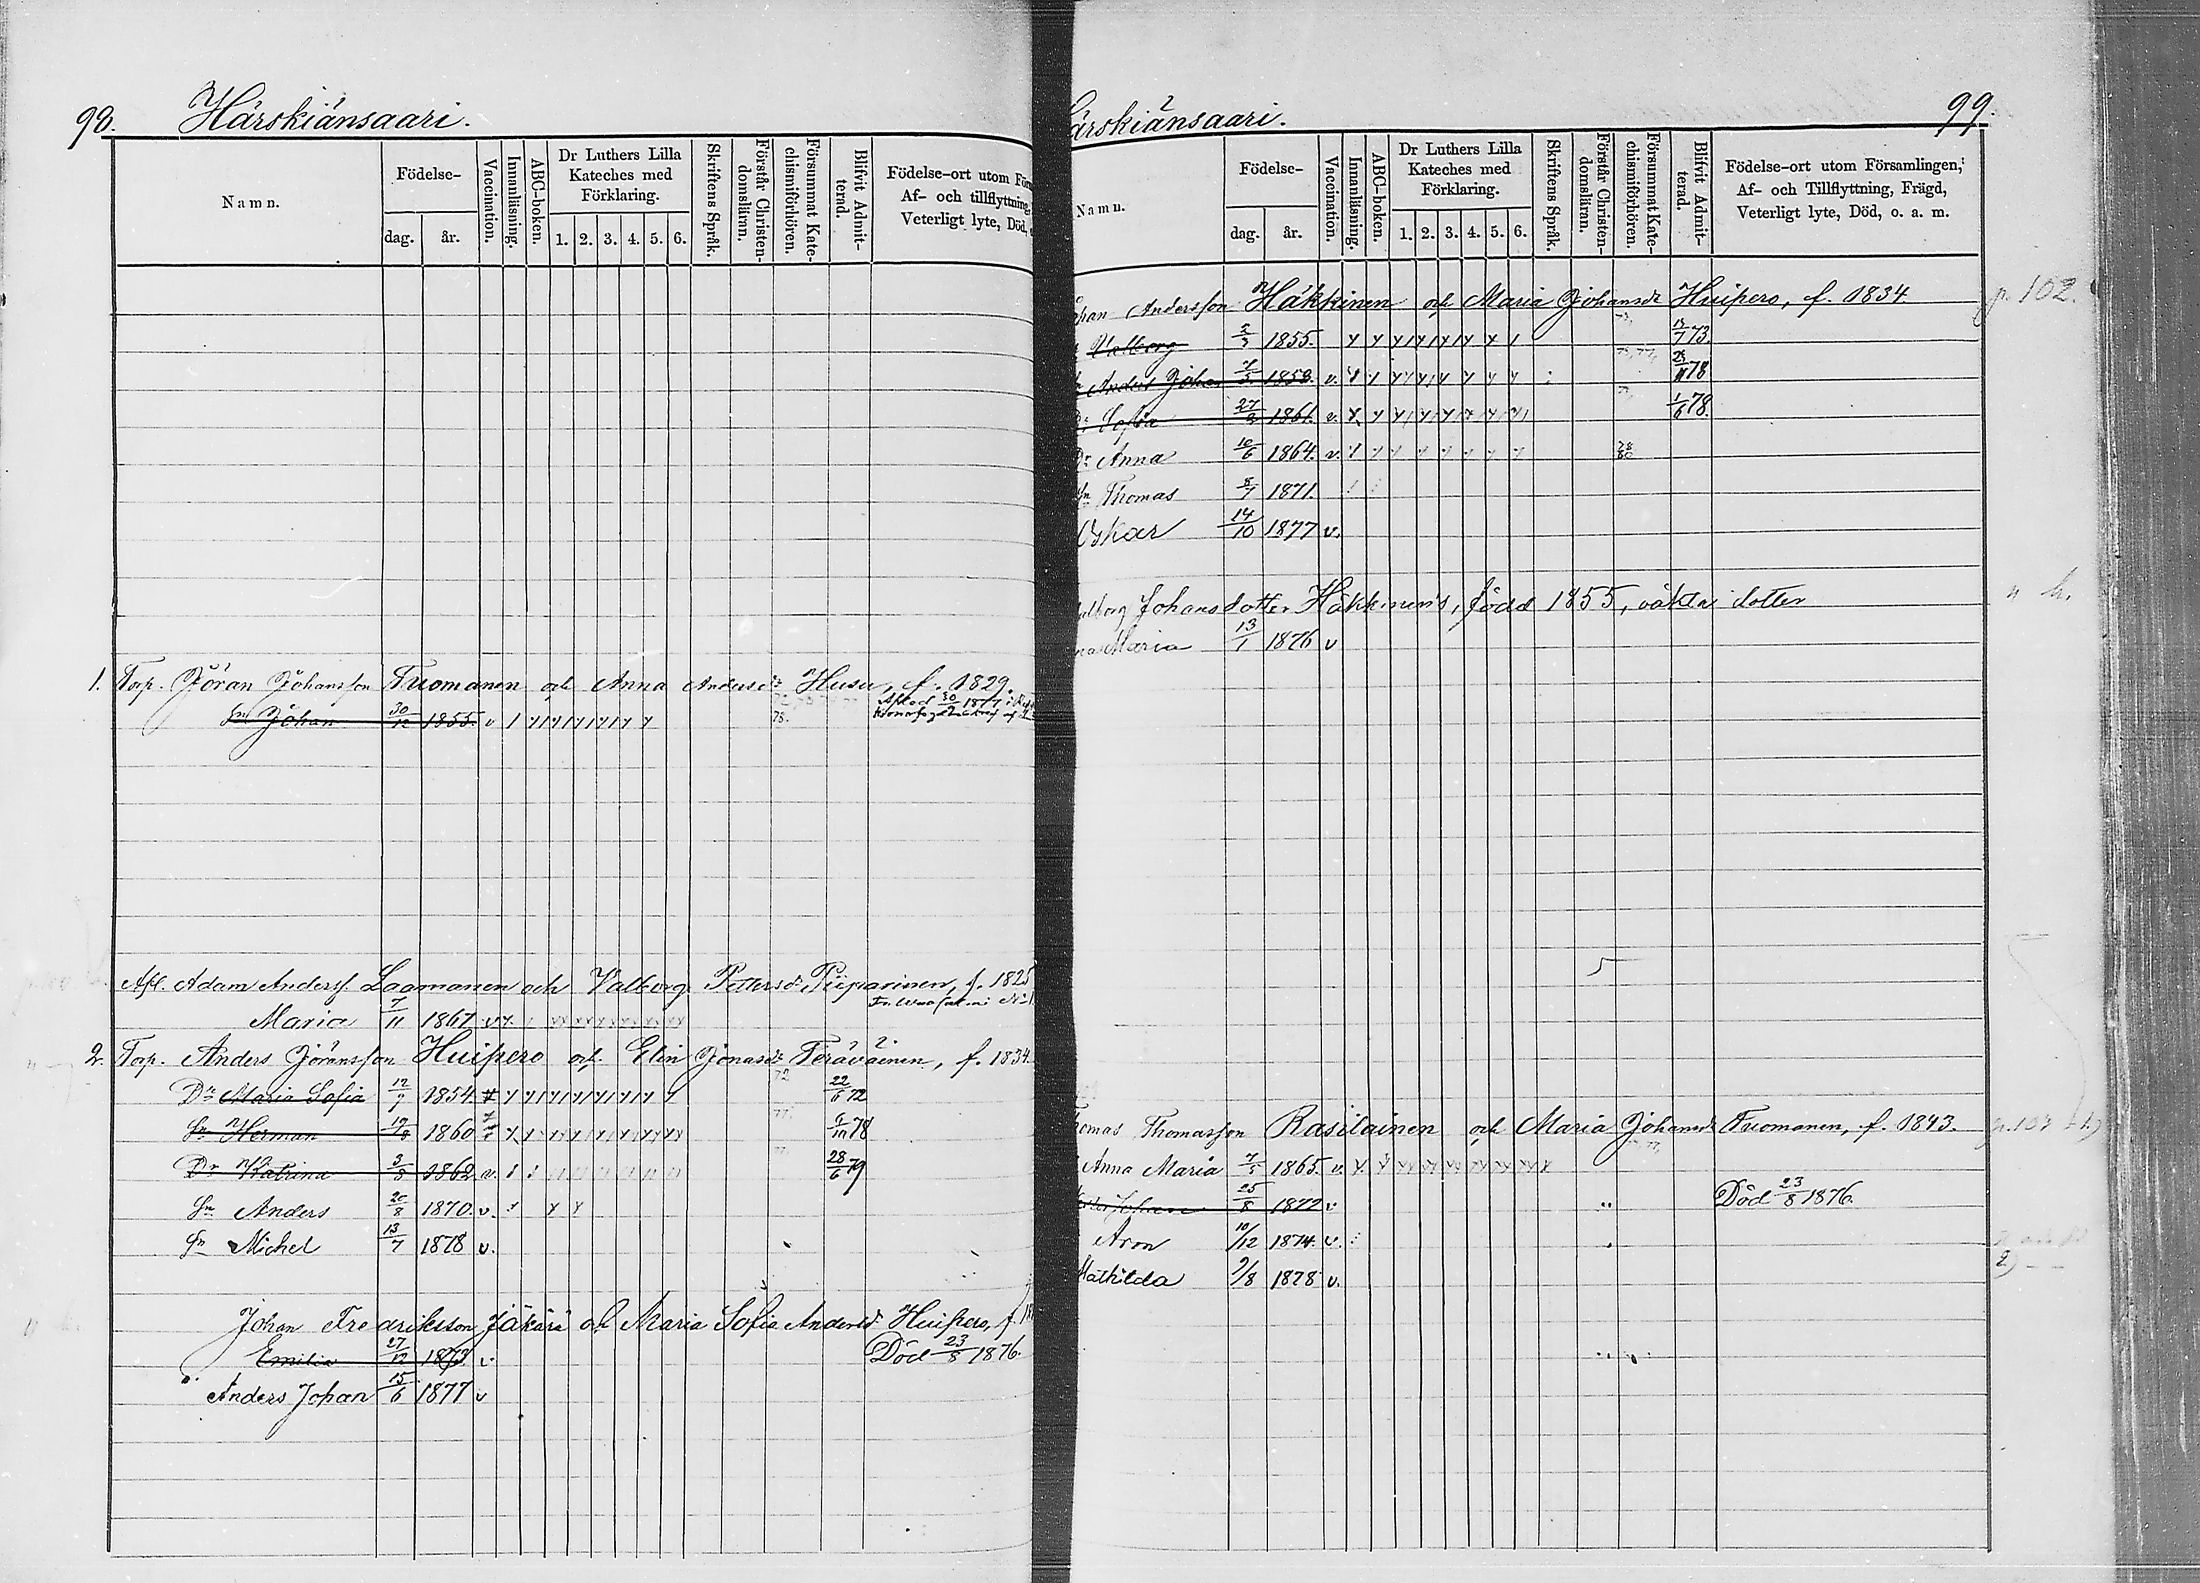 98. Härskiänsaari.
Namn.
Födelse-
dag. år.
Vaccination.
Innanläsning.
ABC-boken.
Dr Luthers Lilla Kateches med Förklaring.
1. 2. 3. 4. 5. 6.
Skriftens Språk.
Förstår Christendomsläran.
Försummat Katechismiförhören.
Blifvit Admitterad.
Födelse-ort utom
Af- och tillflyttning,
Veterligt lyte, Död,
1. Torp. Jöran Johansson Tuomanen och Anna Andersdr Husu, f. 1829.
Sn Johan 30/12 1855. v
Afl. Adam Anderss. Laamanen och Valborg Pettersdr Piiparinen, f. 1825
Maria 7/11 1867 v
2. Torp. Anders Jöransson Huipero och Elin Jonasdr Teräväinen, f. 1834.
Dr Maria Sofia 1854 22/6 72
Sn Herman 1860 78
Dr Katrina 3/8 1862 v. 28/6 79
Sn Anders 20/8 1870 v.
Sn Michel 13/7 1878 v.
Johan Fredriksson Jäkärä och Maria Sofia Andersdr Huipero, f.
Emilia 27/12 1873 v. Död 23/8 1876.
Anders Johan 15/6 1877 v
ärskiänsaari. 99.
Namn.
Födelse-
dag. år.
Vaccination.
Innanläsning.
ABC-boken.
Dr Luthers Lilla Kateches med Förklaring.
1. 2. 3. 4. 5. 6.
Skriftens Språk.
Förstår Christendomsläran.
Försummat Katechismiförhören.
Blifvit Admitterad.
Födelse-ort utom Församlingen,
Af- och Tillflyttning, Frägd,
Veterligt lyte, Död, o. a. m.
Andersson Häkkinen och Maria Johansdr Huipero, f. 1834 p. 102.
Valborg 1855. 73.
Anders Johan 1858. v. 78
Dr Sofia 27/2 1861. v. 1/6 78.
Dr Anna 10/6 1864. v.
Sn Thomas 8/7 1871.
Oskar 14/10 1877 v.
alborg Johansdotter Häkkinen's, född 1855, oäkta dotter
Maria 13/1 1876 v
omas Thomasson Rasilainen och Maria Johansdr Tuomanen, f. 1843.
Anna Maria 7/5 1865. v.
Johan 25/8 1872 v Död 23/8 1876.
Aron 10/12 1874. v.
Mathilda 9/8 1878 v.